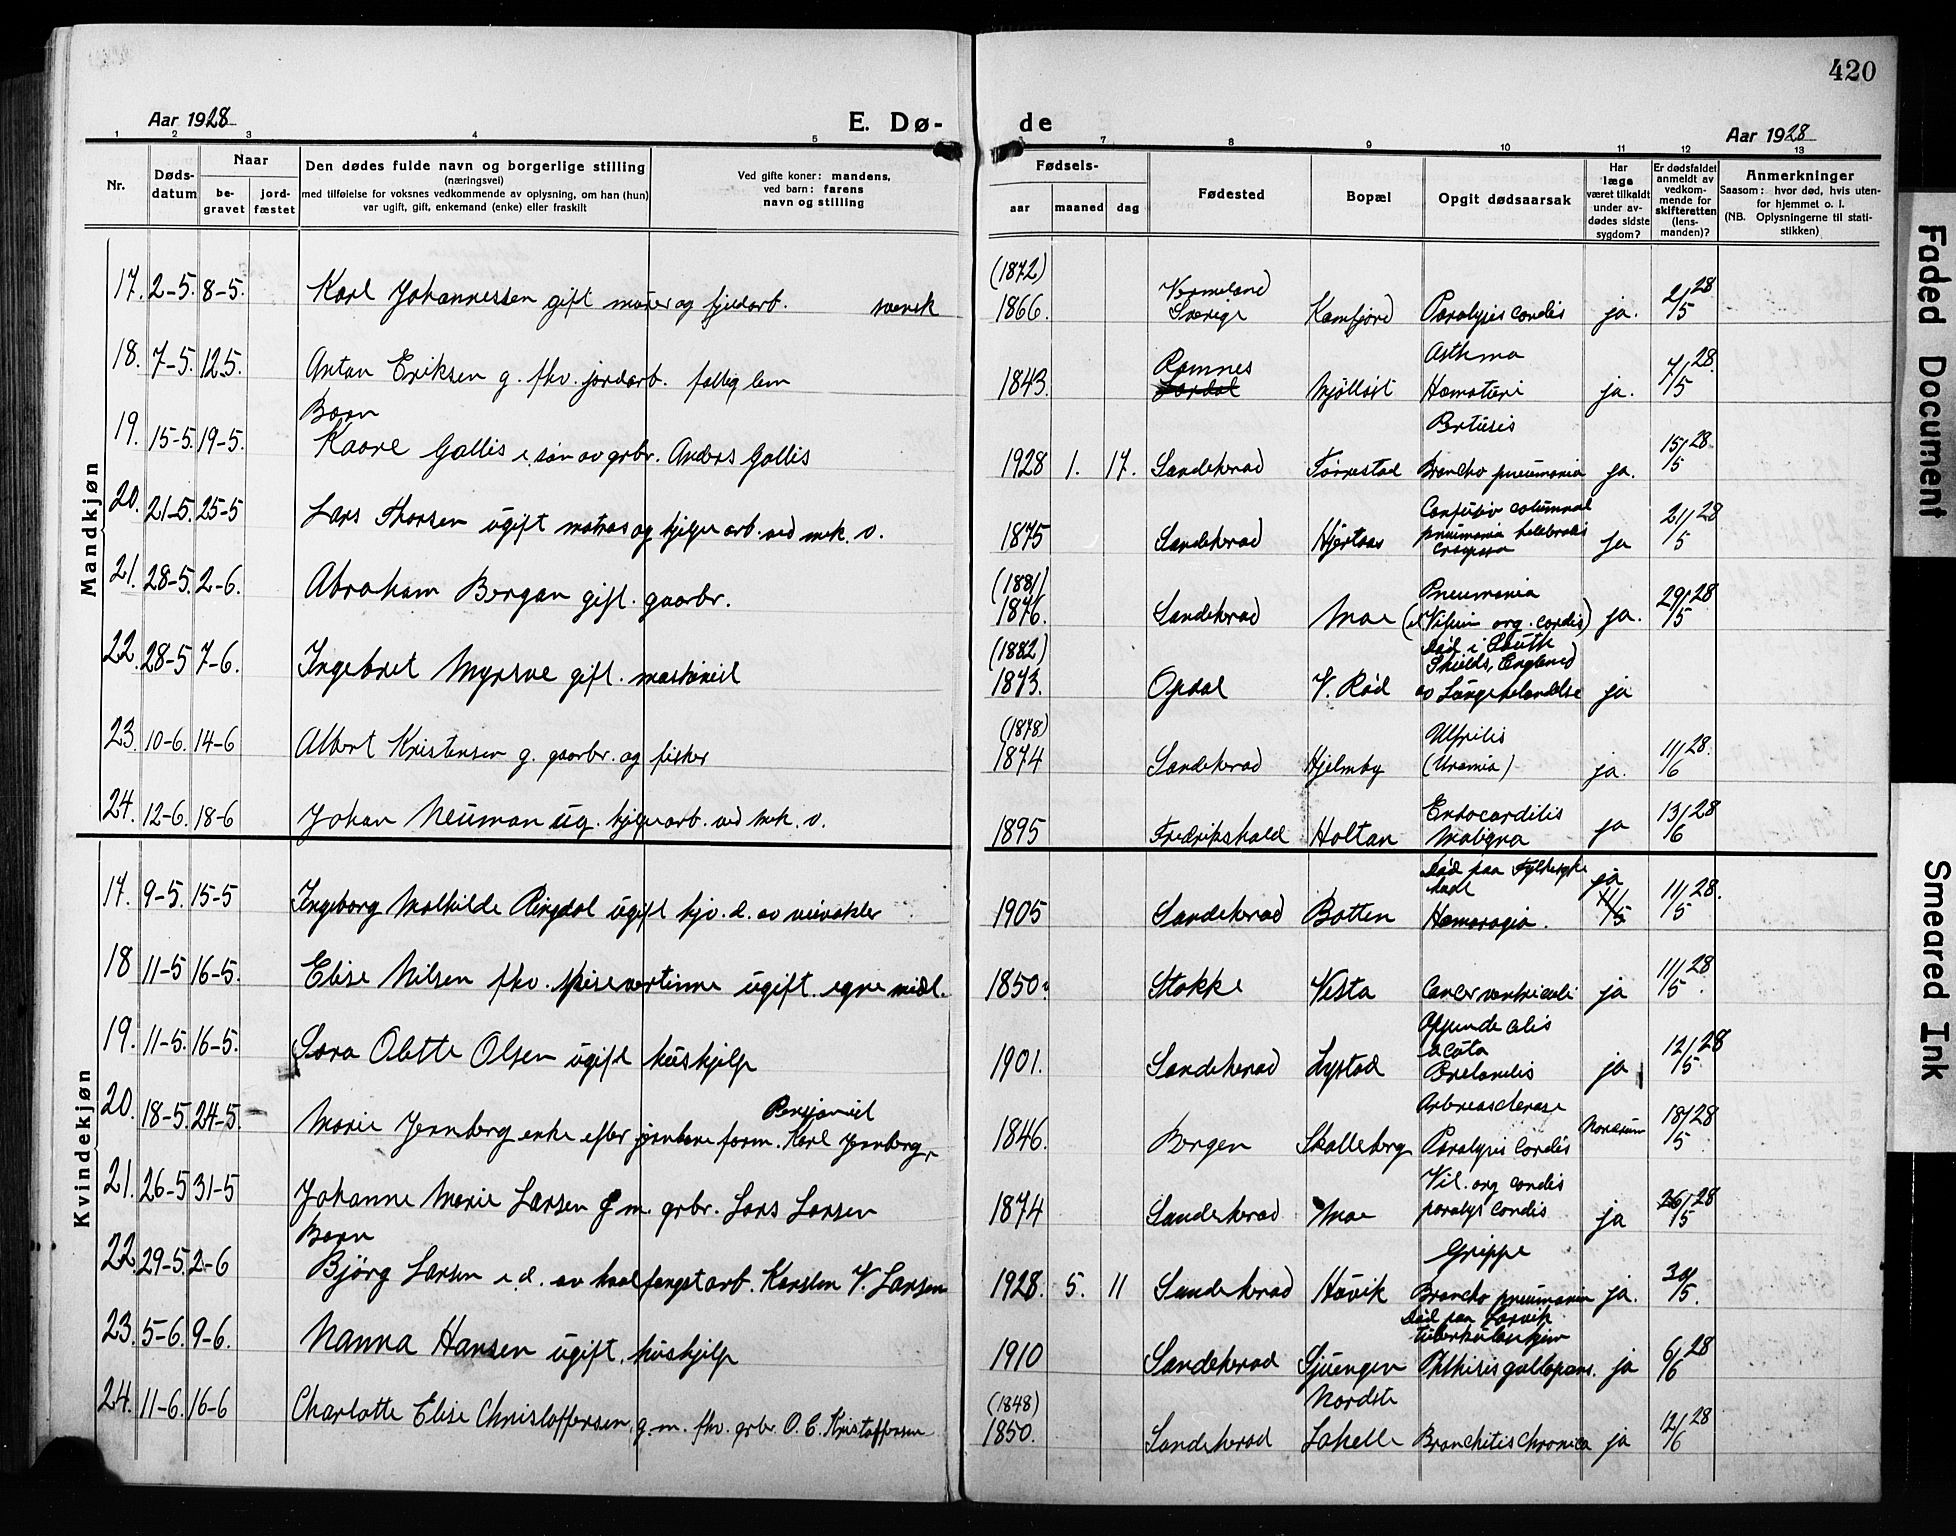 420
Aar 1928
E. Dø-
de
Aar 1928
1 2 3 4 5 7 8 9 10 11 12 13
Nr.
Døds-
datum
Naar
be-
gravet
jord-
fæstet
Den dødes fulde navn og borgerlige stilling
(næringsvei)
med tilføielse for voksnes vedkommende av oplysning, om han (hun)
var ugift, gift, enkemand (enke) eller fraskilt
Ved gifte koner: mandens,
ved barn: farens
navn og stilling
Fødsels-
aar
maaned
dag
Fødested
Bopæl
Opgit dødsaarsak
Har
læge
været tilkaldt
under av-
dødes sidste
sygdom?
Er dødsfaldet
anmeldt av
vedkom-
mende for
skifteretten
(lens-
manden)?
Anmerkninger
Saasom: hvor død, hvis uten-
for hjemmet o. l.
(NB. Oplysningerne til stati-
stikken)
Mandkjøn
(1872)
17. 2-5. 8-5. Karl Johannessen gift murer og fjeldarb. svensk 1866. Vermeland Sverige Kamfjord Paralysis cordis ja. 2/5 28
18. 7-5. 12.5. Anton Eriksen g. fhv. jordarb. fattig lem 1843. Ramnes Mjöllöst Asthma ja. 7/5 28.
Barn
19. 15-5. 19-5. Kaare Gallis e. søn av grbr. Anders Gallis 1928 1. 17. Sandeherad Forrestad Broncho pneumonia ja. 15/5 28
20. 21-5. 25-5 Lars Thorsen ugift matros og hjelpearb. ved mek. v. 1875 Sandeherad Hjertaas pneumonia ja 21/5 28
(1881)
21. 28-5. 2-6. Abraham Bergan gift. gaarbr. 1876. Sandeherad Moe Pneumonia (et Vitium org. cordis) ja. 29/5 28
(1882)
22. 28-5 7-6. Ingebret Myrsve gift. maskinist 1873. Opdal V. Rød Død i South Shields, England av Lungebetændelse ja
(1878)
23. 10-6. 14-6 Albert Kristensen g. gaarbr. og fisker 1874 Sandeherad Hjelmby (Uræmia) ja. 11/6 28.
24. 12-6. 18-6 Johan Neuman ug. hjelpearb. ved mek. v. 1895 Fredrikshald Holtan Endocarditis Maligna ja 13/6 28
Kvindekjøn
17. 9-5. 15-5 Ingeborg Mathilde Ringdal ugift hjv. d. av veivokter 1905 Sandeherad Botten Død paa Fylkessyke Hæmoragia. ja 11/5 11/5 28.
18 11-5 16-5. Elise Nilsen fhv. spisevertinne ugift. egne midl. 1850. Stokke Vesta Cancer ventriculi ja 11/5 28.
19. 11-5. 16-5. Sara Olette Olsen ugift hushjelp 1901. Sandeherad Lystad acuta ja 12/5 28
20. 18-5. 24-5. Marie Jernberg enke efter jernbane form. Karl Jernberg. Pensjonist 1846. Bergen Skalleberg Paralysis Cordis 18/5 28
21. 26-5 31-5 Johanne Marie Larsen g. m. grbr. Lars Larsen 1874 Sandeherad Moe Vit. org cordis paralys Cordis ja 26/5 28
Barn
22. 29-5. 2-6 Bjørg Larsen e. d. av hvalfangstarb. Karsten V. Larsen 1928. 5. 11 Sandeherad Hauvik Grippe Broncho pneumonia ja. 30/5.
23. 5-6. 9-6. Nanna Hansen ugift, hushjelp 1910 Sandeherad Sjuengen Død paa Larvik tuberkulosehjem Phthisis gallopans. ja 6/6 28
(1848)
24. 11-6. 16-6 Charlotte Elise Christoffersen, g. m. fhv. grbr. O. C. Kristoffersen 1850. Sandeherad Nordste Lahelle Bronchitis chronica ja 12/6 28
Faded Document
Smeared Ink